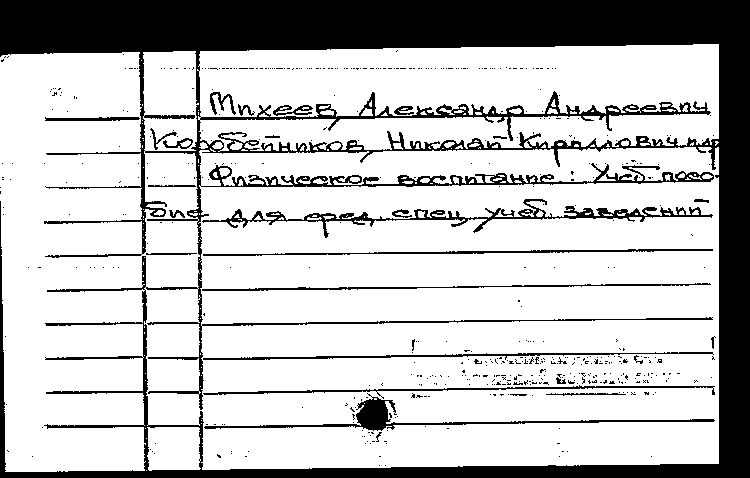 Михеев, Александр Андреевич
Коробейников, Николай Кириллович и др
Физическое воспитание: Учеб. посо-
бие для сред. спец. учеб. заведений